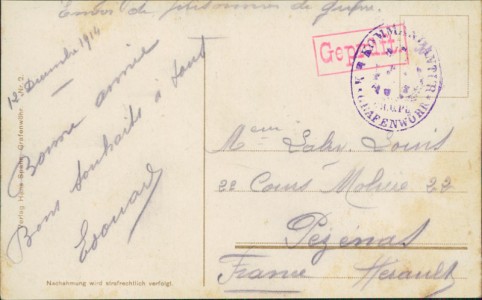 Envoi de prisonnier de guerre.
12 Decembre 1914
Bonne année
Bons souhaits à tous
Edouard
Geprüft
KOMMANDANTUR
GRAFENWÖHR
Louis
22 Cours Molière 22
Pézénas
France Herault
Verlag Hans Grafenwöhr Nr. 2.
Nachahmung wird strafrechtlich verfolgt.